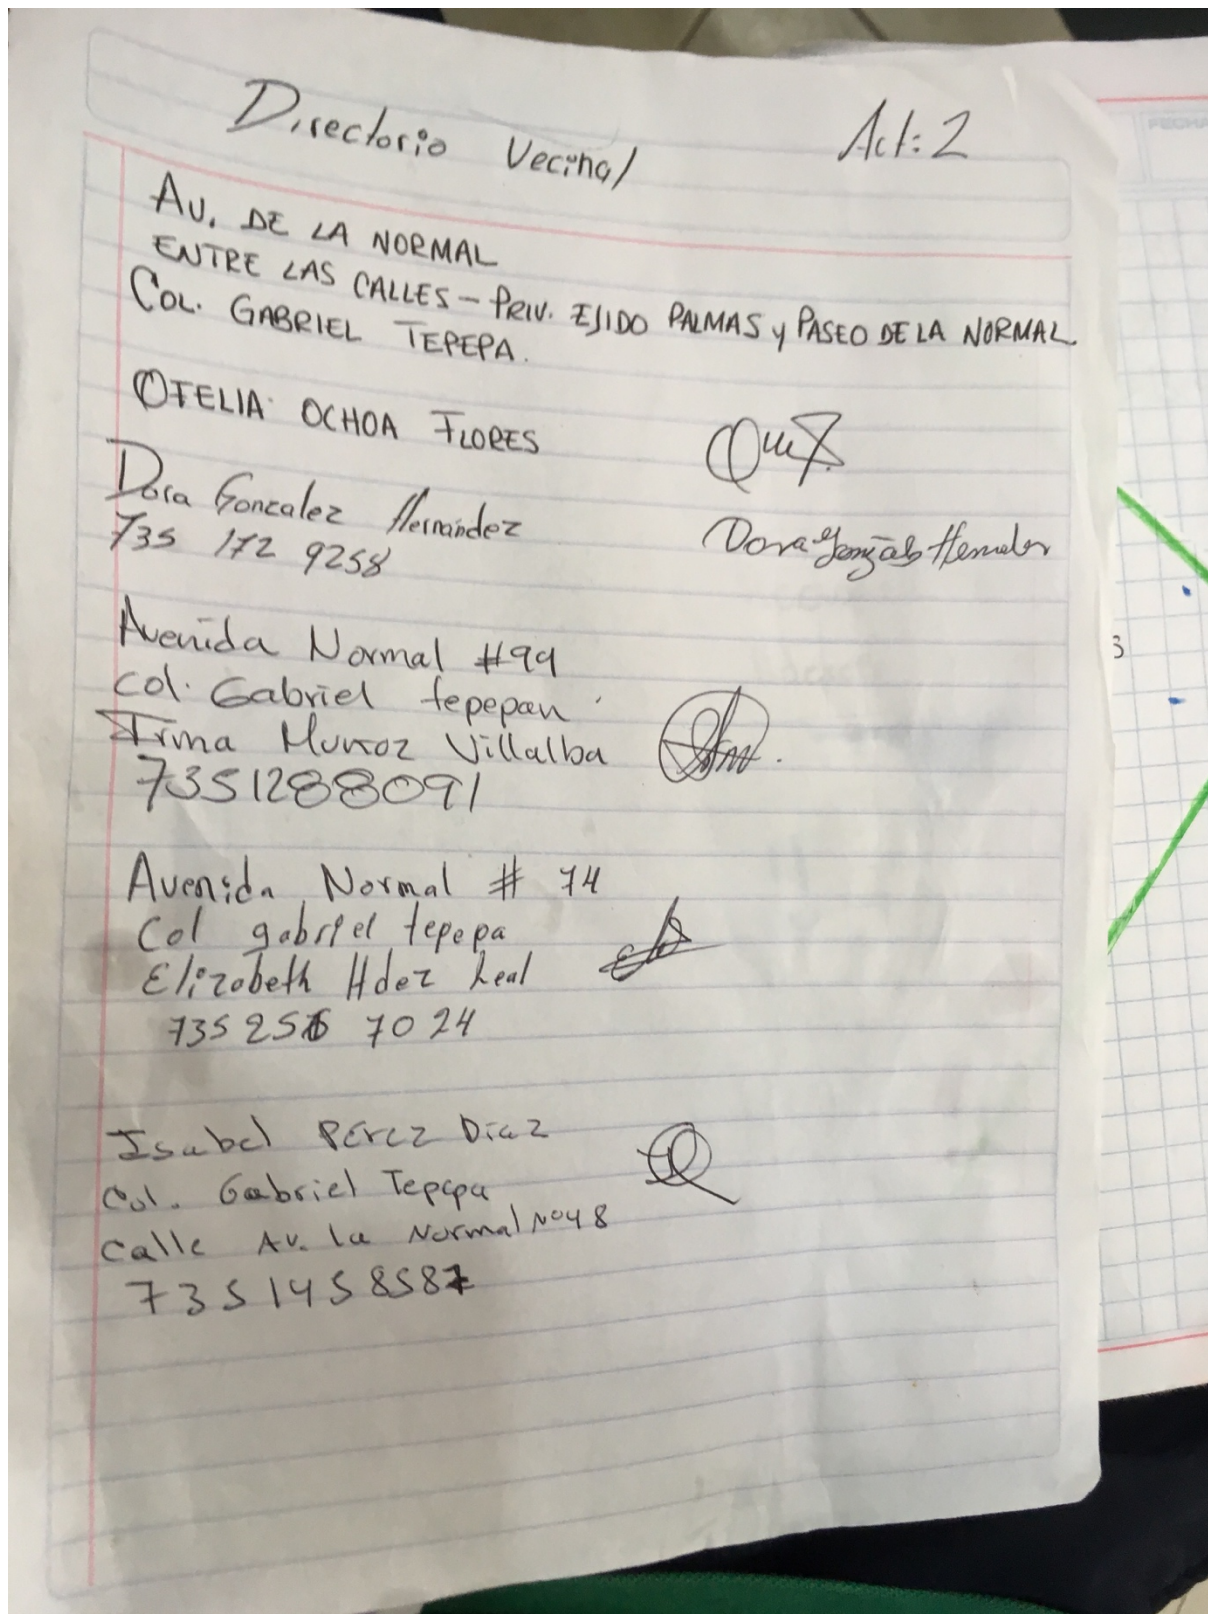 Directorio Vecinal Act: 2
AV. DE LA NORMAL
ENTRE LAS CALLES - PRIV. EJIDO PALMAS y PASEO DE LA NORMAL
COL. GABRIEL TEPEPA.
OFELIA OCHOA FLORES
Dora Gonzalez Hernández
735 172 9258
Avenida Normal #99
col. Gabriel tepepan
Irma Munoz Villalba
7351288091
Avenida Normal # 74
Col gabriel tepepa
Elizabeth Hdez Leal
735 256 7024
Isabel Pérez Díaz
Col. Gabriel Tepepa
Calle Av. la Normal No 48
7351458587
FECHA